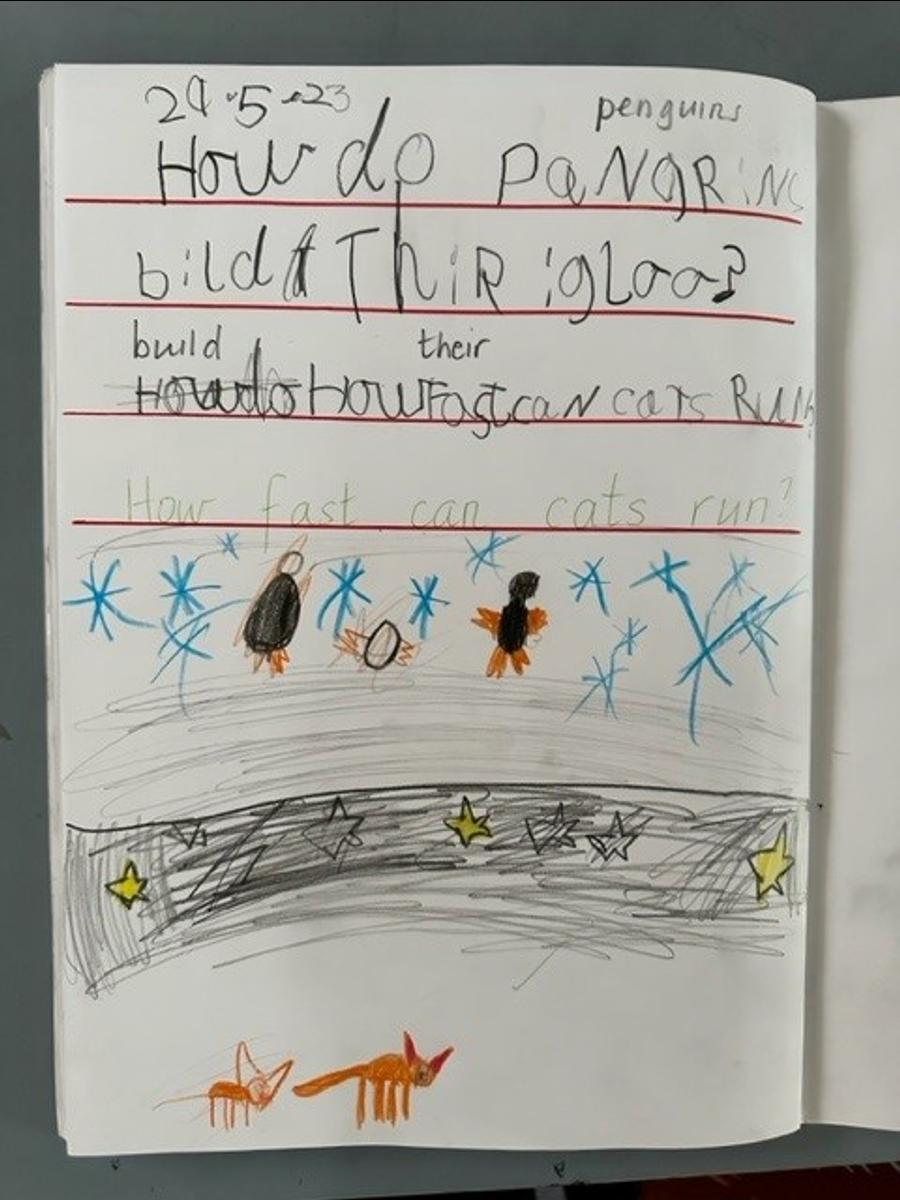 29.5.23
penguins
How do PaNgRiNs
bild Thir igloo?
build their
How do How Fast can cats Run?
How fast can cats run?